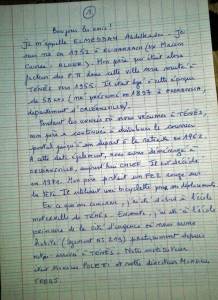 ①
Bonjour les amis !
Je m'appelle ELMEDDAH Abdelkader. Je
suis né en 1952 à EL HARRACH (ex Maison
Carrée - ALGER). Mon père qui était alors
facteur des P.T. dans cette ville sera muté à
TENES en 1955. Il était âgé à cette époque
de 58 ans (né présumé en 1897 à
département d'ORLEANSVILLE).
Pendant les années où nous vécûmes à TENES,
mon père a continué à distribuer le courrier
postal jusqu'à son départ à la retraite en 1962.
A cette date également, nous avons déménagé à
ORLEANSVILLE, aujourd'hui CHLEF. Il est décédé
en 1972. Mon père portait un FEZ rouge sur
la tête. Il utilisait une bicyclette pour ses déplacements.
En ce qui me concerne, j'ai débuté à l'école
maternelle de TENES. Ensuite, j'ai été à l'école
primaire de la cité d'urgence où nous avons
habité (logement N° 219) pratiquement depuis
notre arrivée à TENES. Notre instituteur
était Monsieur POLETI et notre directeur Monsieur